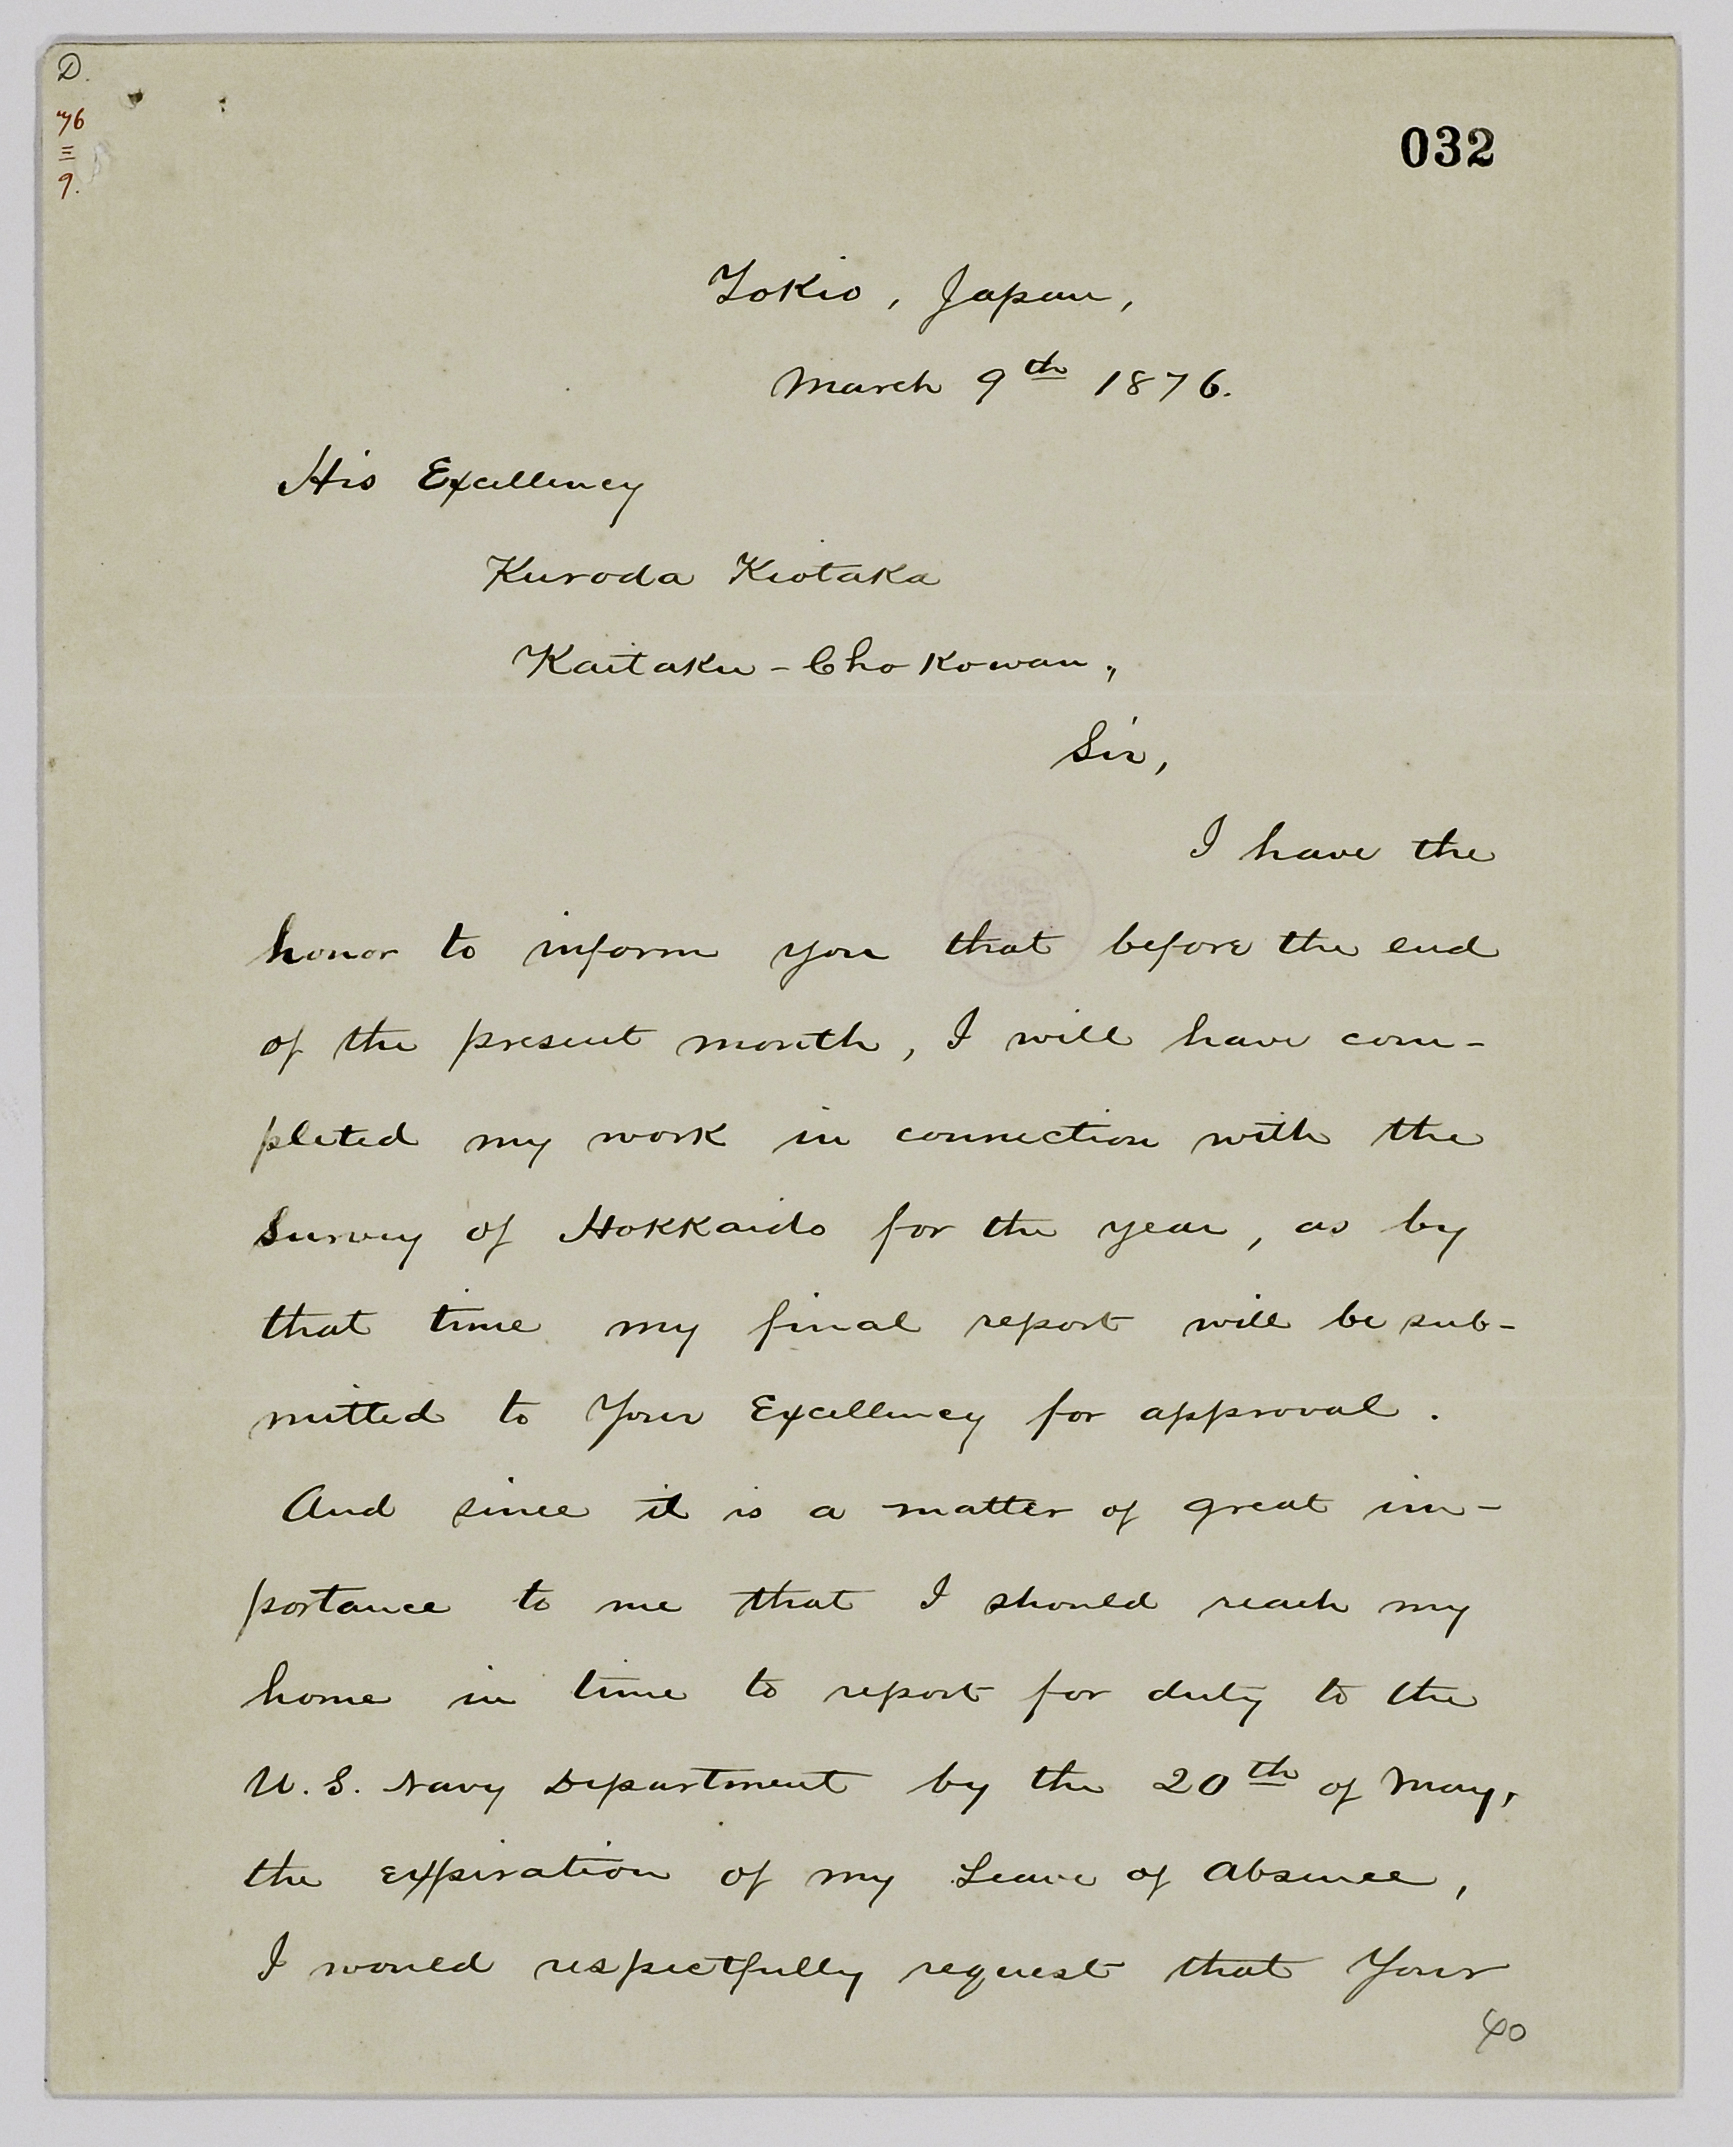 D.
76
III
9.
032
Tokio, Japan,
March 9th 1876.
His Excellency
Kuroda Kiotaka
Kaitaku-Chokowan,
Sir,
I have the
honor to inform you that before the end
of the present month, I will have com-
pleted my work in connection with the
Survey of Hokkaido for the year, as by
that time my final report will be sub-
mitted to Your Excellency for approval.
And since it is a matter of great im-
portance to me that I should reach my
home in time to report for duty to the
U.S. Navy Department by the 20th of May,
the expiration of my Leave of Absence,
I would respectfully request that Your